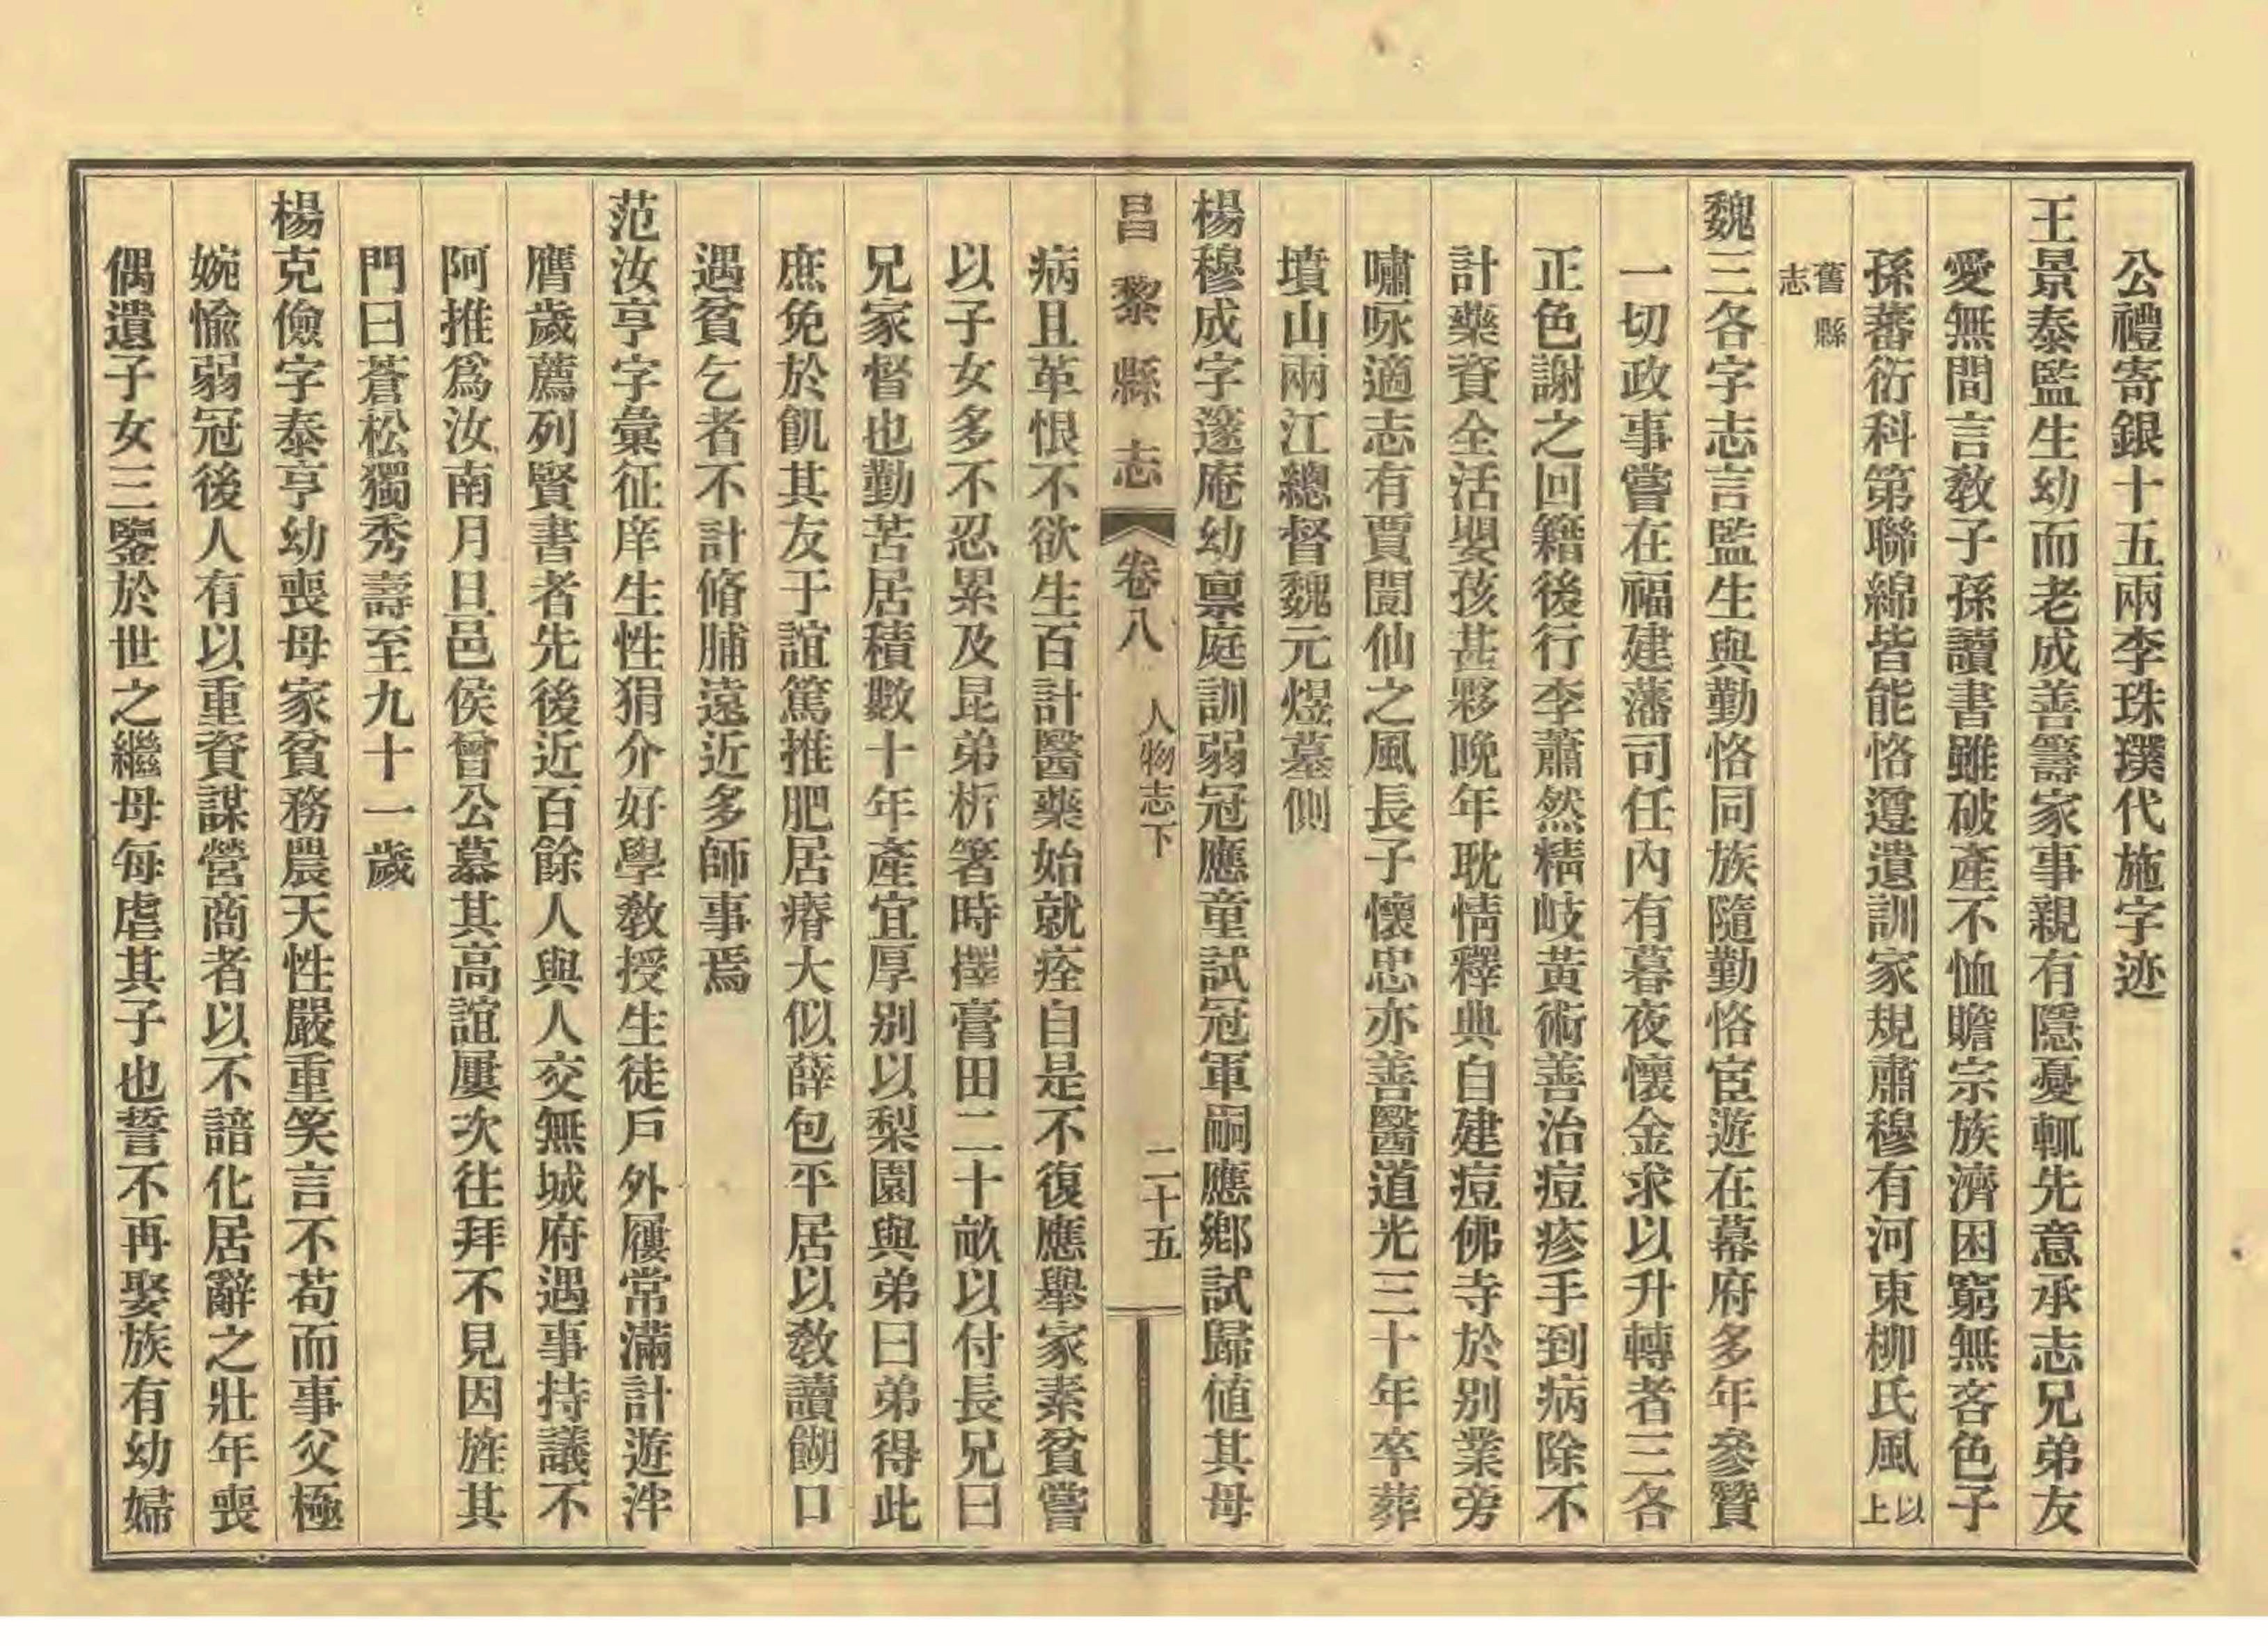 公禮寄銀十五兩李珠璞代施字迹
王景泰監生幼而老成善籌家事親有隱憂輒先意承志兄弟友
愛無間言教子孫讀書雖破產不恤贍宗族濟困窮無吝色子
孫蕃衍科第聯綿皆能恪遵遺訓家規肅穆有河東柳氏風以上
舊縣志
魏三各字志言監生與勤恪同族隨勤恪宦遊在幕府多年參贊
一切政事嘗在福建藩司任內有暮夜懷金求以升轉者三各
正色謝之回籍後行李蕭然精岐黃術善治痘疹手到病除不
計藥資全活嬰孩甚夥晚年耽情釋典自建痘佛寺於別業旁
嘯咏適志有賈閬仙之風長子懷忠亦善醫道光三十年卒葬
墳山兩江總督魏元煜墓側
楊穆成字邃庵幼稟庭訓弱冠應童試冠軍嗣應鄉試歸値其母
昌黎縣志 卷八 人物志下 二十五
病且革恨不欲生百計醫藥始就痊自是不復應舉家素貧嘗
以子女多不忍累及昆弟析箸時擇膏田二十畝以付長兄曰
兄家督也勤苦居積數十年產宜厚別以梨園與弟曰弟得此
庶免於飢其友于誼篤推肥居瘠大似薛包平居以教讀餬口
遇貧乞者不計脩脯遠近多師事焉
范汝亨字彙征庠生性狷介好學教授生徒戶外屨常滿計遊泮
膺歲薦列賢書者先後近百餘人與人交無城府遇事持議不
阿推爲汝南月旦邑侯曾公慕其高誼屢次往拜不見因旌其
門曰蒼松獨秀壽至九十一歲
楊克儉字泰亨幼喪母家貧務農天性嚴重笑言不苟而事父極
婉愉弱冠後人有以重資謀營商者以不諳化居辭之壯年喪
偶遺子女三鑒於世之繼母每虐其子也誓不再娶族有幼婦